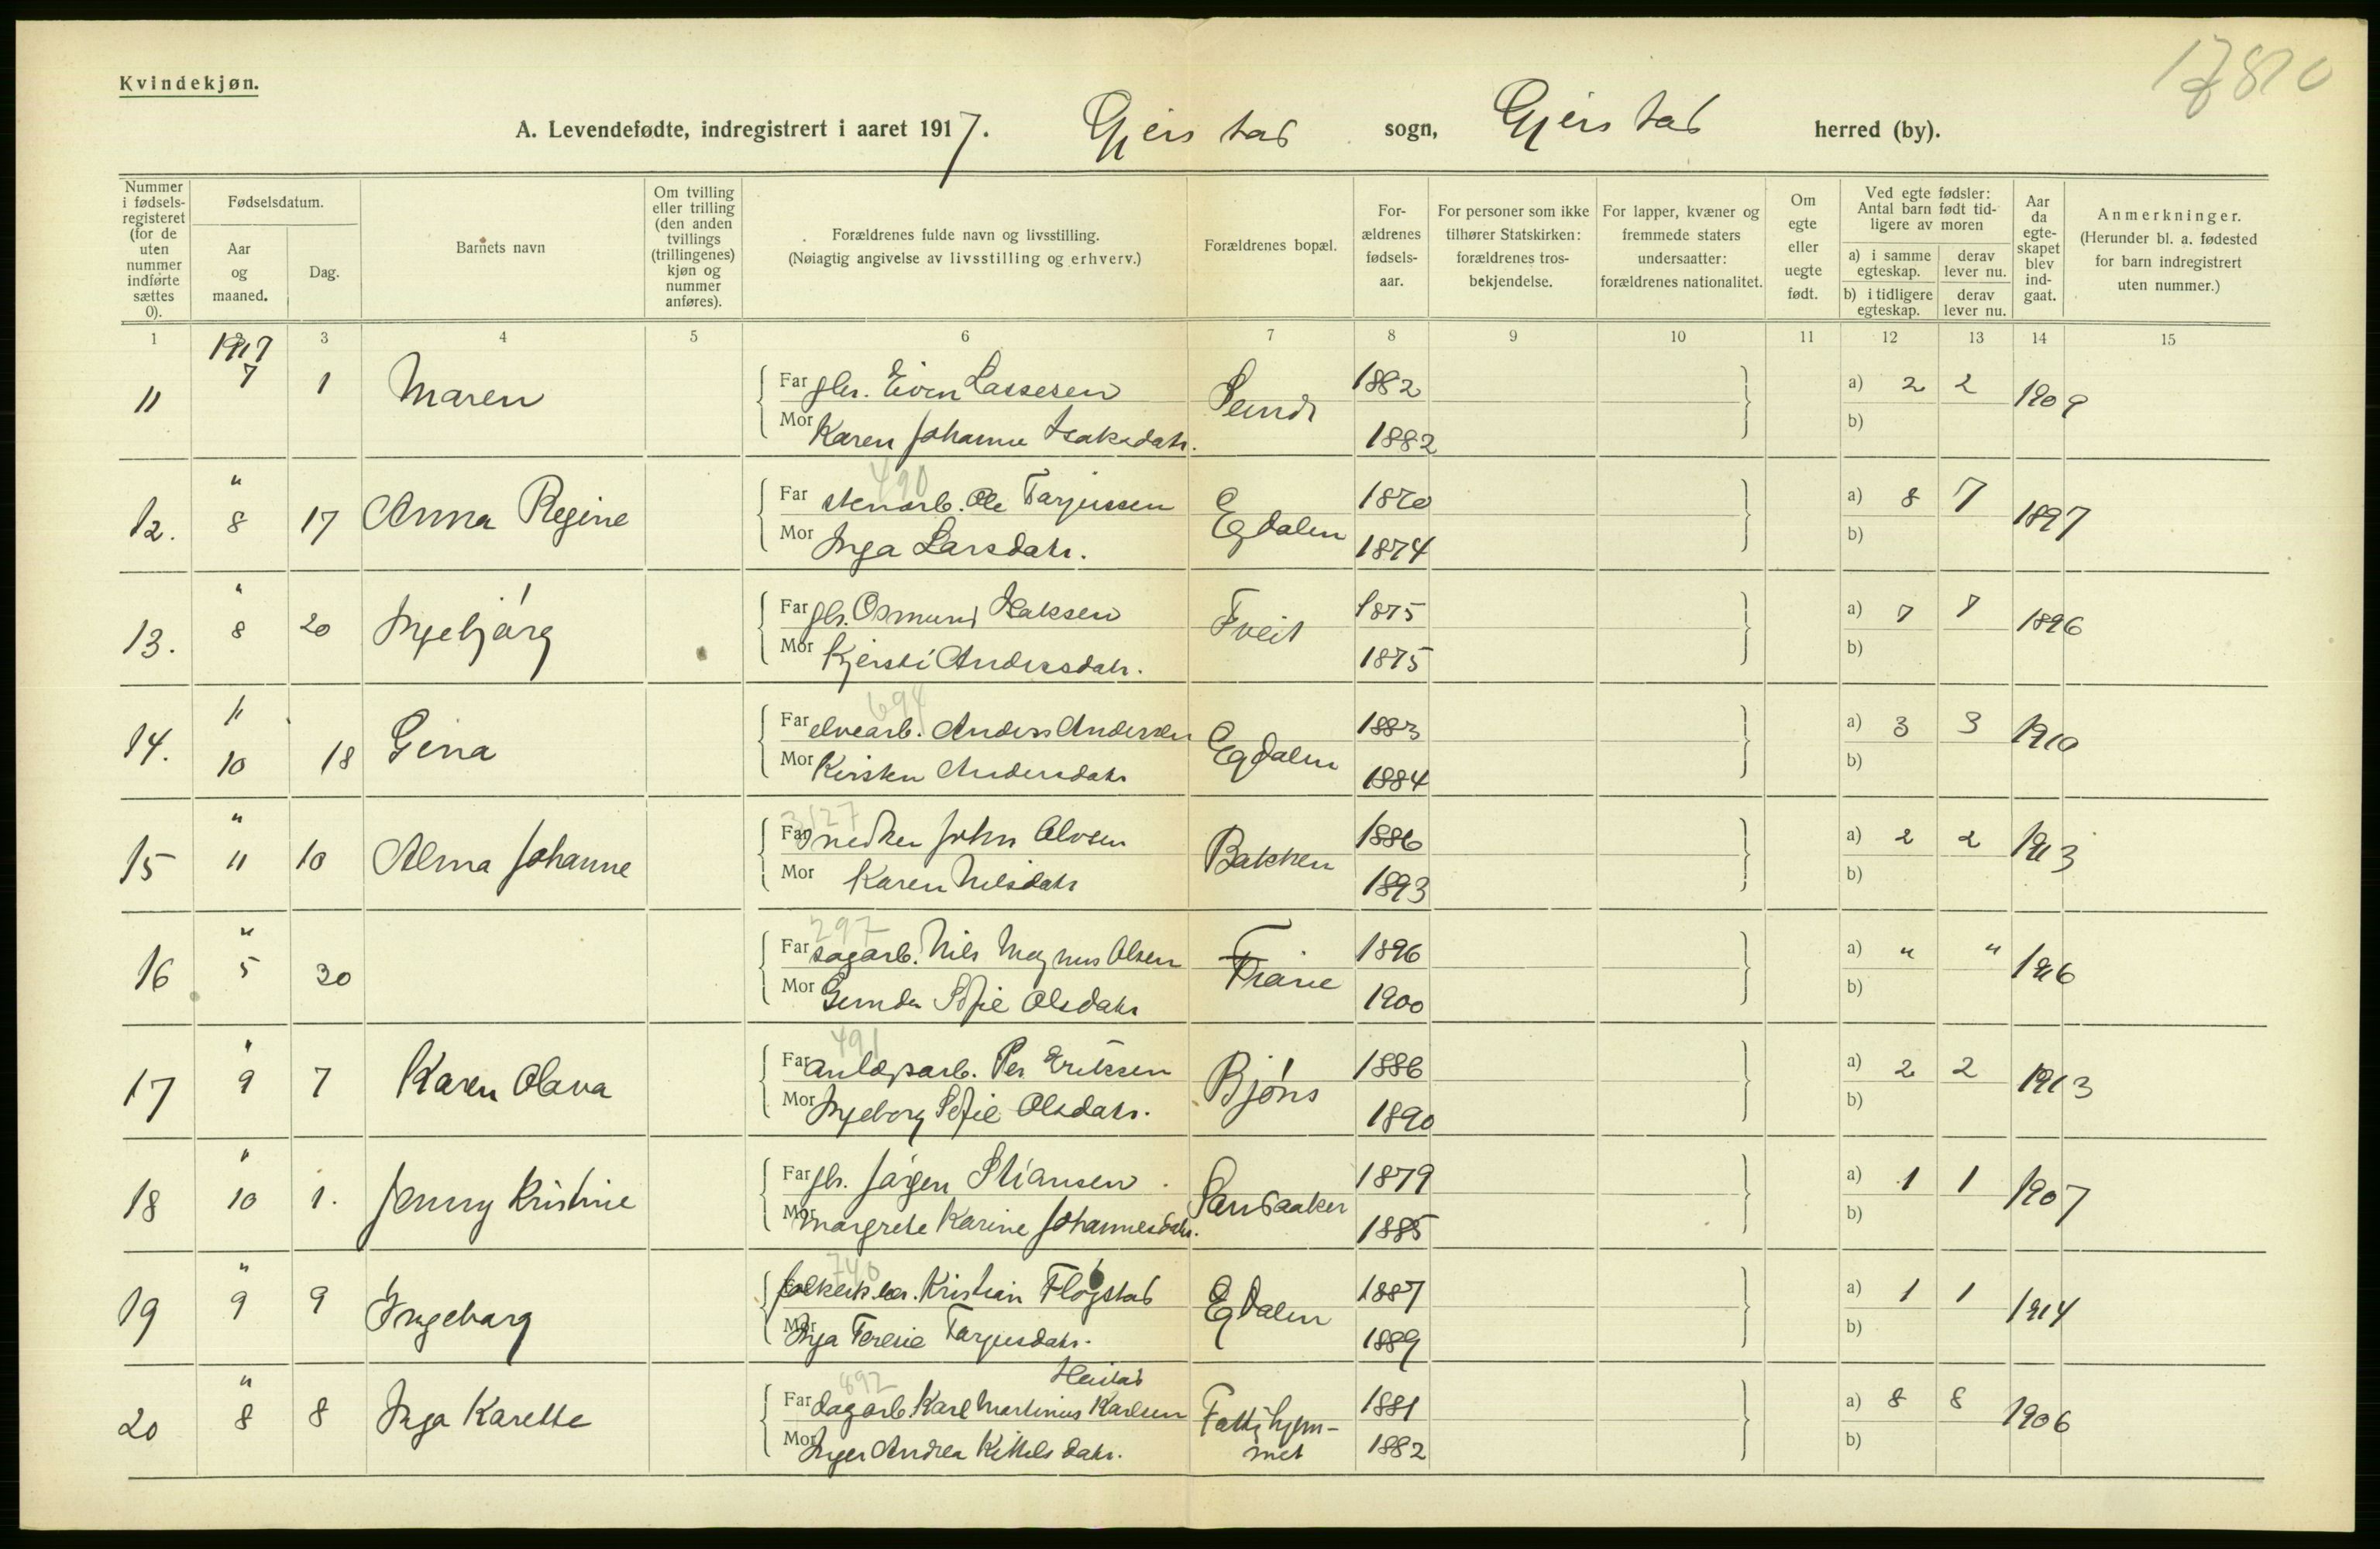 17810
Kvindekjøn.
A. Levendefødte, indregistrert i aaret 1917. Gjerstad sogn, Gjerstad herred (by).
Nummer i fødselsregisteret (for de uten nummer indførte sættes 0).
Fødselsdatum.
Aar og maaned.
Dag.
Barnets navn
Om tvilling eller trilling (den anden tvillings (trillingenes) kjøn og nummer anføres).
Forældrenes fulde navn og livsstilling.
(Nøiagtig angivelse av livsstilling og erhverv.)
Forældrenes bopæl.
Forældrenes fødselsaar.
For personer som ikke tilhører Statskirken: forældrenes trosbekjendelse.
For lapper, kvæner og fremmede staters undersaatter: forældrenes nationalitet.
Om egte eller uegte født.
Ved egte fødsler: Antal barn født tidligere av moren
a) i samme egteskap. derav lever nu.
b) i tidligere egteskap. derav lever nu.
Aar da egteskapet blev indgaat.
Anmerkninger.
(Herunder bl. a. fødested for barn indregistrert uten nummer.)
1 3 4 5 6 7 8 9 10 11 12 13 14 15
1917
11 7 1 Maren Far gbr. Even Lassesen 1882 a) 2 2 1909
Mor Karen Johanne Isaksdatr. 1882 b)
490
12. " 8 17 Anna Regine Far stenarb. Ole Tarjussen Egdalen 1870 a) 8 7 1897
Mor Inga Larsdatr. 1874 b)
13. " 8 20 Ingebjørg Far gbr. Osmund Isaksen Tveit 1875 a) 7 7 1896
Mor Kjersti Andersdatr. 1875 b)
694
14. " 10 18 Gina Far elvearb. Anders Andersen Egdalen 1883 a) 3 3 1910
Mor Kirsten Andersdatr 1884 b)
3127
15 " 11 10 Alma Johanne Far snedker John Olosen Bakken 1886 a) 2 2 1913
Mor Karen Nilsdatr 1893 b)
297
16 " 5 30 Far sagarb. Nils Magnus Olsen 1896 a) " " 1916
Mor Gunda Sofie Olsdatr 1900 b)
491
17 " 9 7 Karen Olava Far anlægsarb. Per Eriksen Bjöns 1886 a) 2 2 1913
Mor Ingeborg Sofie Olsdatr. 1890 b)
18 " 10 1. Jenny Kristine Far gbr. Jørgen Stiansen Sandaaker 1879 a) 1 1 1907
Mor Margrete Karine Johannesdatr. 1885 b)
740
19 " 9 9 Ingeborg Kristian Fløgstad Egdalen 1887 a) 1 1 1914
Mor Inga Teresie Tarjusdatr. 1889 b)
892 Heistad
20 " 8 8 Inga Karette Far dagarb Karl Martinius Karlsen Fattighjem- 1881 a) 8 8 1906
Mor Inger Andrea Kittelsdatr. met 1882 b)